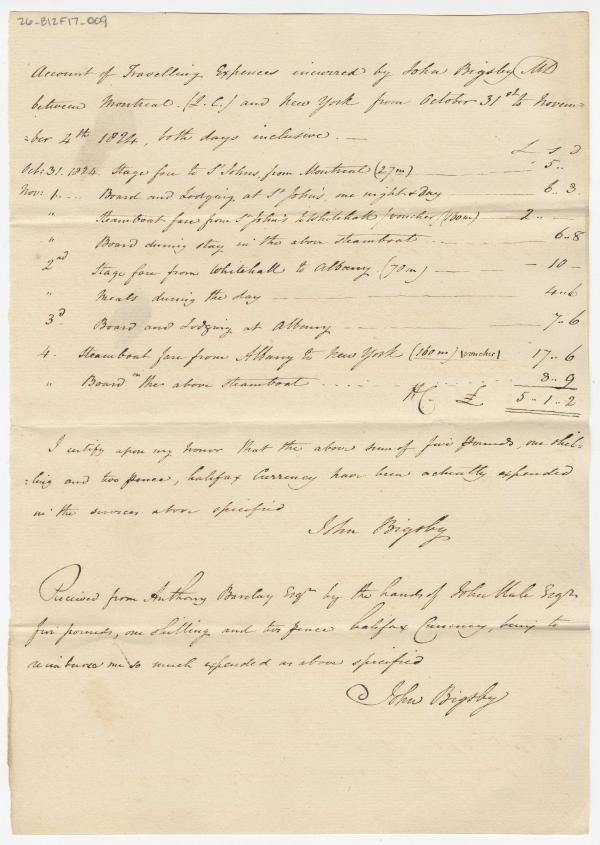 26-B12F17-009
Account of Travelling Expences incurred by John Bigsby MD
between Montreal (L.C.) and New York from October 31st to Novem=
=ber 4th 1824, both days inclusive. —
£ s d
Oct: 31. 1824. Stage fare to St Johns, from Montreal (27m) — " 5 "
Nov: 1. ... Board and Lodging at St John's, one night & day — 6 .. 3
" Steamboat fare from St John's to Whitehall (voucher) (150m) — 2 .. —
" Board during stay in the above Steamboat — 6 .. 8
2nd Stage fare from Whitehall to Albany (70m) — — 10 —
" Meals during the day — 4 .. 6
3d. Board and Lodging at Albany — 7 .. 6
4. Steamboat fare from Albany to New York (160m) (voucher) 17 .. 6
" Board in the above Steamboat .... 3 .. 9
HC. £ 5 .. 1 .. 2
I certify upon my honor that the above sum of five pounds, one shil=
=ling and two pence, halifax Currency have been actually expended
in the services above specified
John Bigsby
Received from Anthony Barclay Esqre by the hands of John Hale Esqre
five pounds, one shilling and two pence halifax Currency, being to
reimburse me so much expended as above specified
John Bigsby